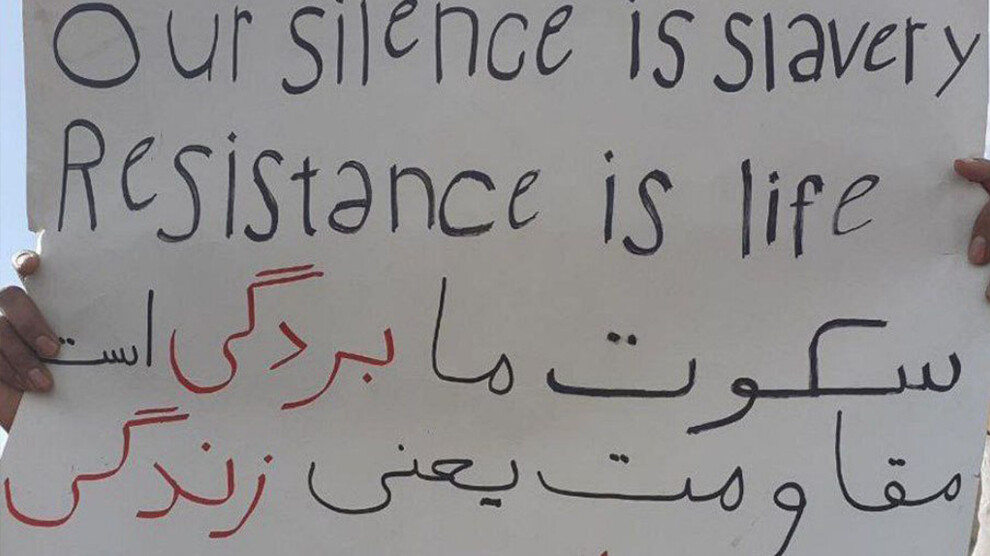 Our silence is slavery
Resistance is life
سکوت ما بردگی است
مقاومت یعنی زندگی